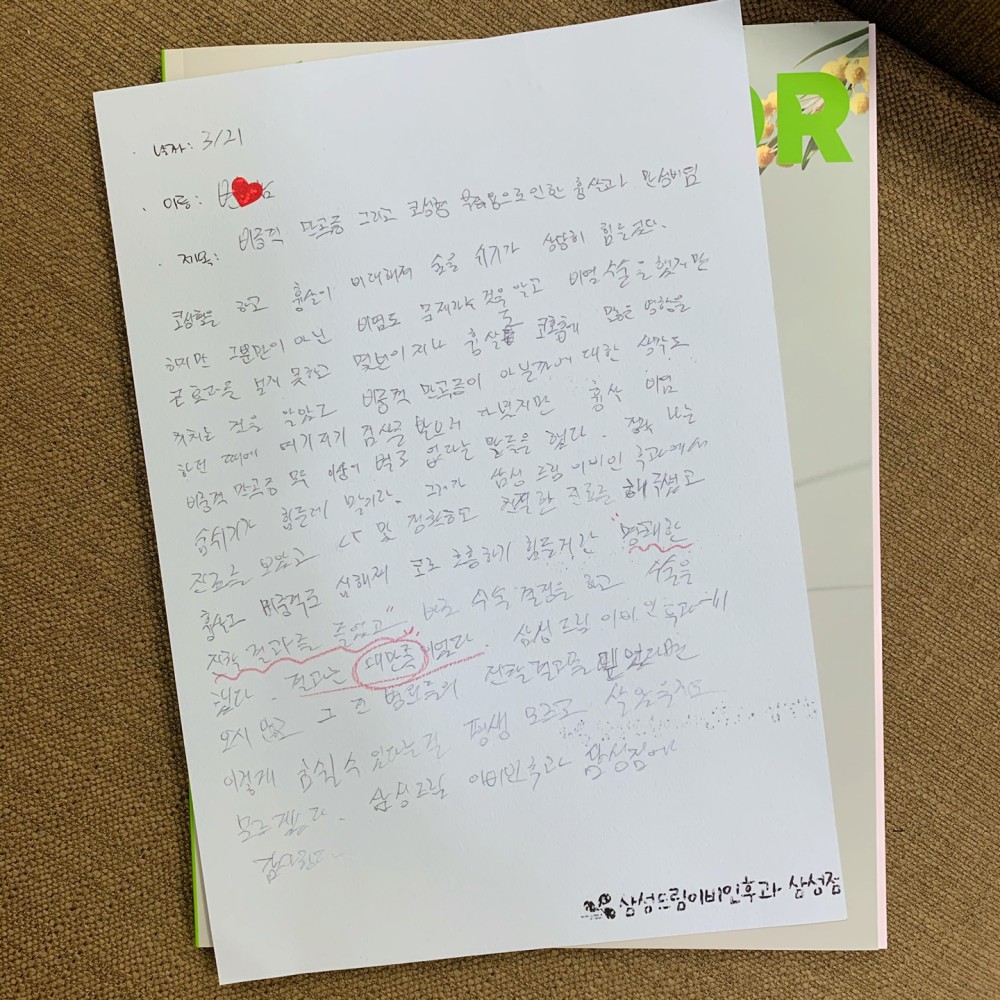 날짜: 3/21
이름: 변
제목: 비중격 만곡증 그리고 코성형 부작용으로 인한 휜살과 만성비염
코성형을 하고 휜살이 비대해져 숨을 쉬기가 상당히 힘들었다.
하지만 그뿐만이 아닌 비염도 문제라는 것을 알고 비염 수술을 했지만
큰 효과를 보지 못하고 몇년이 지나 코호흡에 많은 영향을
끼치는 것을 알았고 비중격 만곡증이 아닐까에 대한 생각도
하던 때에 여기저기 검사를 받으러 다녔지만 비염
비중격 만곡증 모두 이상이 별로 없다는 말들을 했다. 정작 나는
숨쉬기가 힘든데 말이다. 그러다 삼성드림이비인후과에서
진료를 보았고 CT 및 정확하고 친절한 진료를 해주셨고
비중격도 심해져 코로 호흡하기 힘들거란 "명쾌한
진찰 결과를 들었고" 바로 수술 결정을 하고 수술을
했다. 결과는 대만족이었다. 삼성드림이비인후과에
오시 않고 그 전 병원들의 진찰결과를 믿었다면
이렇게 숨쉴수 있다는걸 평생 모르고 살았을지도
모르겠다. 삼성드림이비인후과 삼성점에
감사한다
삼성드림이비인후과 삼성점
OR